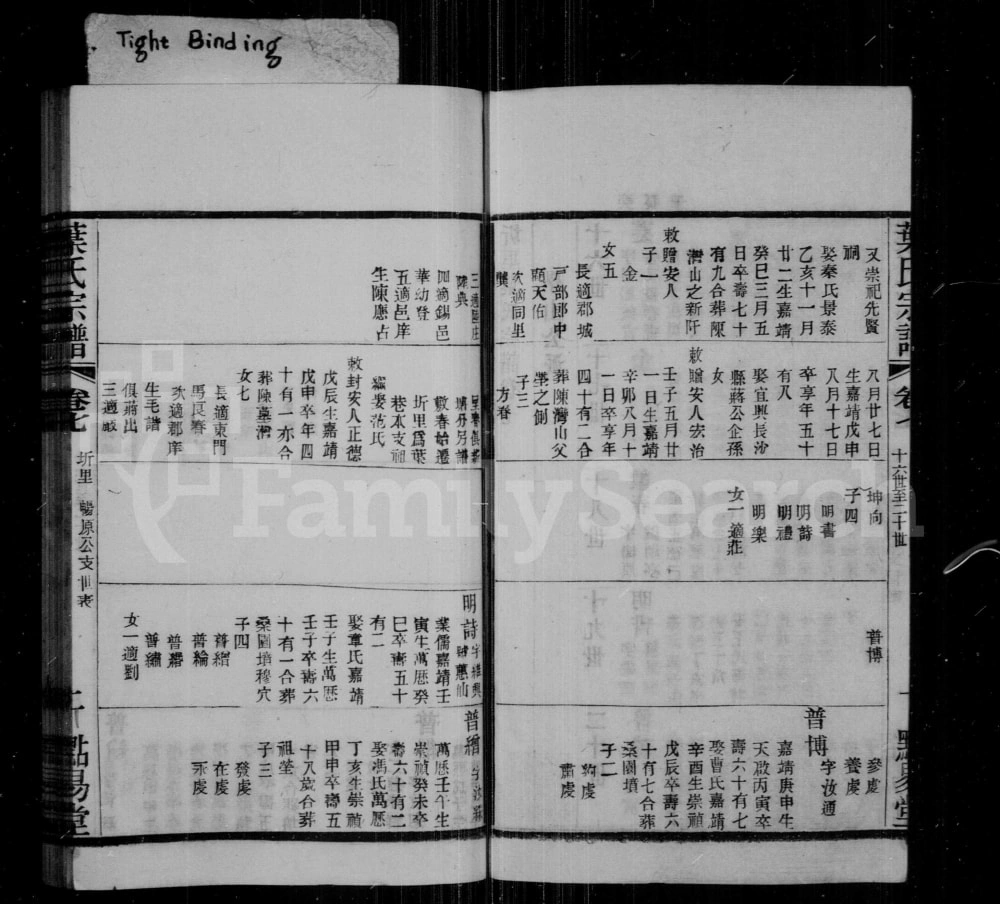 Tight Binding
FamilySearch
葉氏宗譜
卷七
十六世至二十世
點易堂
又崇祀先賢
祠
娶秦氏景泰
乙亥十一月
廿二生嘉靖
癸巳三月五
日卒壽七十
有九合葬陳
灣山之新阡
敕贈安人
子一
金
女五
長適郡城
戸部郎中
顧天佑
次適同里
龔
八月廿七日
生嘉靖戊申
八月十七日
卒享年五十
有八
娶宜興長汾
縣蔣公企孫
女
敕贈安人宏治
壬子五月廿
一日生嘉靖
辛卯八月十
一日卒享年
四十有二合
葬陳灣山父
塋之側
子三
方春
坤向
子四
明書
明詩
明禮
明樂
女一適莊
普博
參虔
養虔
普博
字汝通
嘉靖庚申生
天啟丙寅卒
壽六十有七
娶曹氏嘉靖
辛酉生崇禎
戊辰卒壽六
十有七合葬
桑園墳
子二
鈞虔
肅虔
陳典
四適錫邑
華幼登
五適邑庠
生陳應占
敷春始遷
圻里爲葉
巷本支祖
繼娶范氏
敕封安人正德
戊辰生嘉靖
戊申卒年四
十有一亦合
葬陳墓灣
女七
長適東門
馬艮春
次適郡庠
生毛諧
俱蔣出
三適嚴
明詩
業儒嘉靖壬
寅生萬厯癸
巳卒壽五十
有二
娶章氏嘉靖
壬子生萬厯
壬子卒壽六
十有一合葬
桑園墳穆穴
子四
普繒
普綸
普繼
普繡
女一適劉
普繒
萬厯壬午生
崇禎癸未卒
壽六十有二
娶馮氏萬厯
丁亥生崇禎
甲申卒壽五
十八歲合葬
祖塋
子三
發虔
在虔
承虔
葉氏宗譜
卷七
圻里
暘原公支世表
點易堂